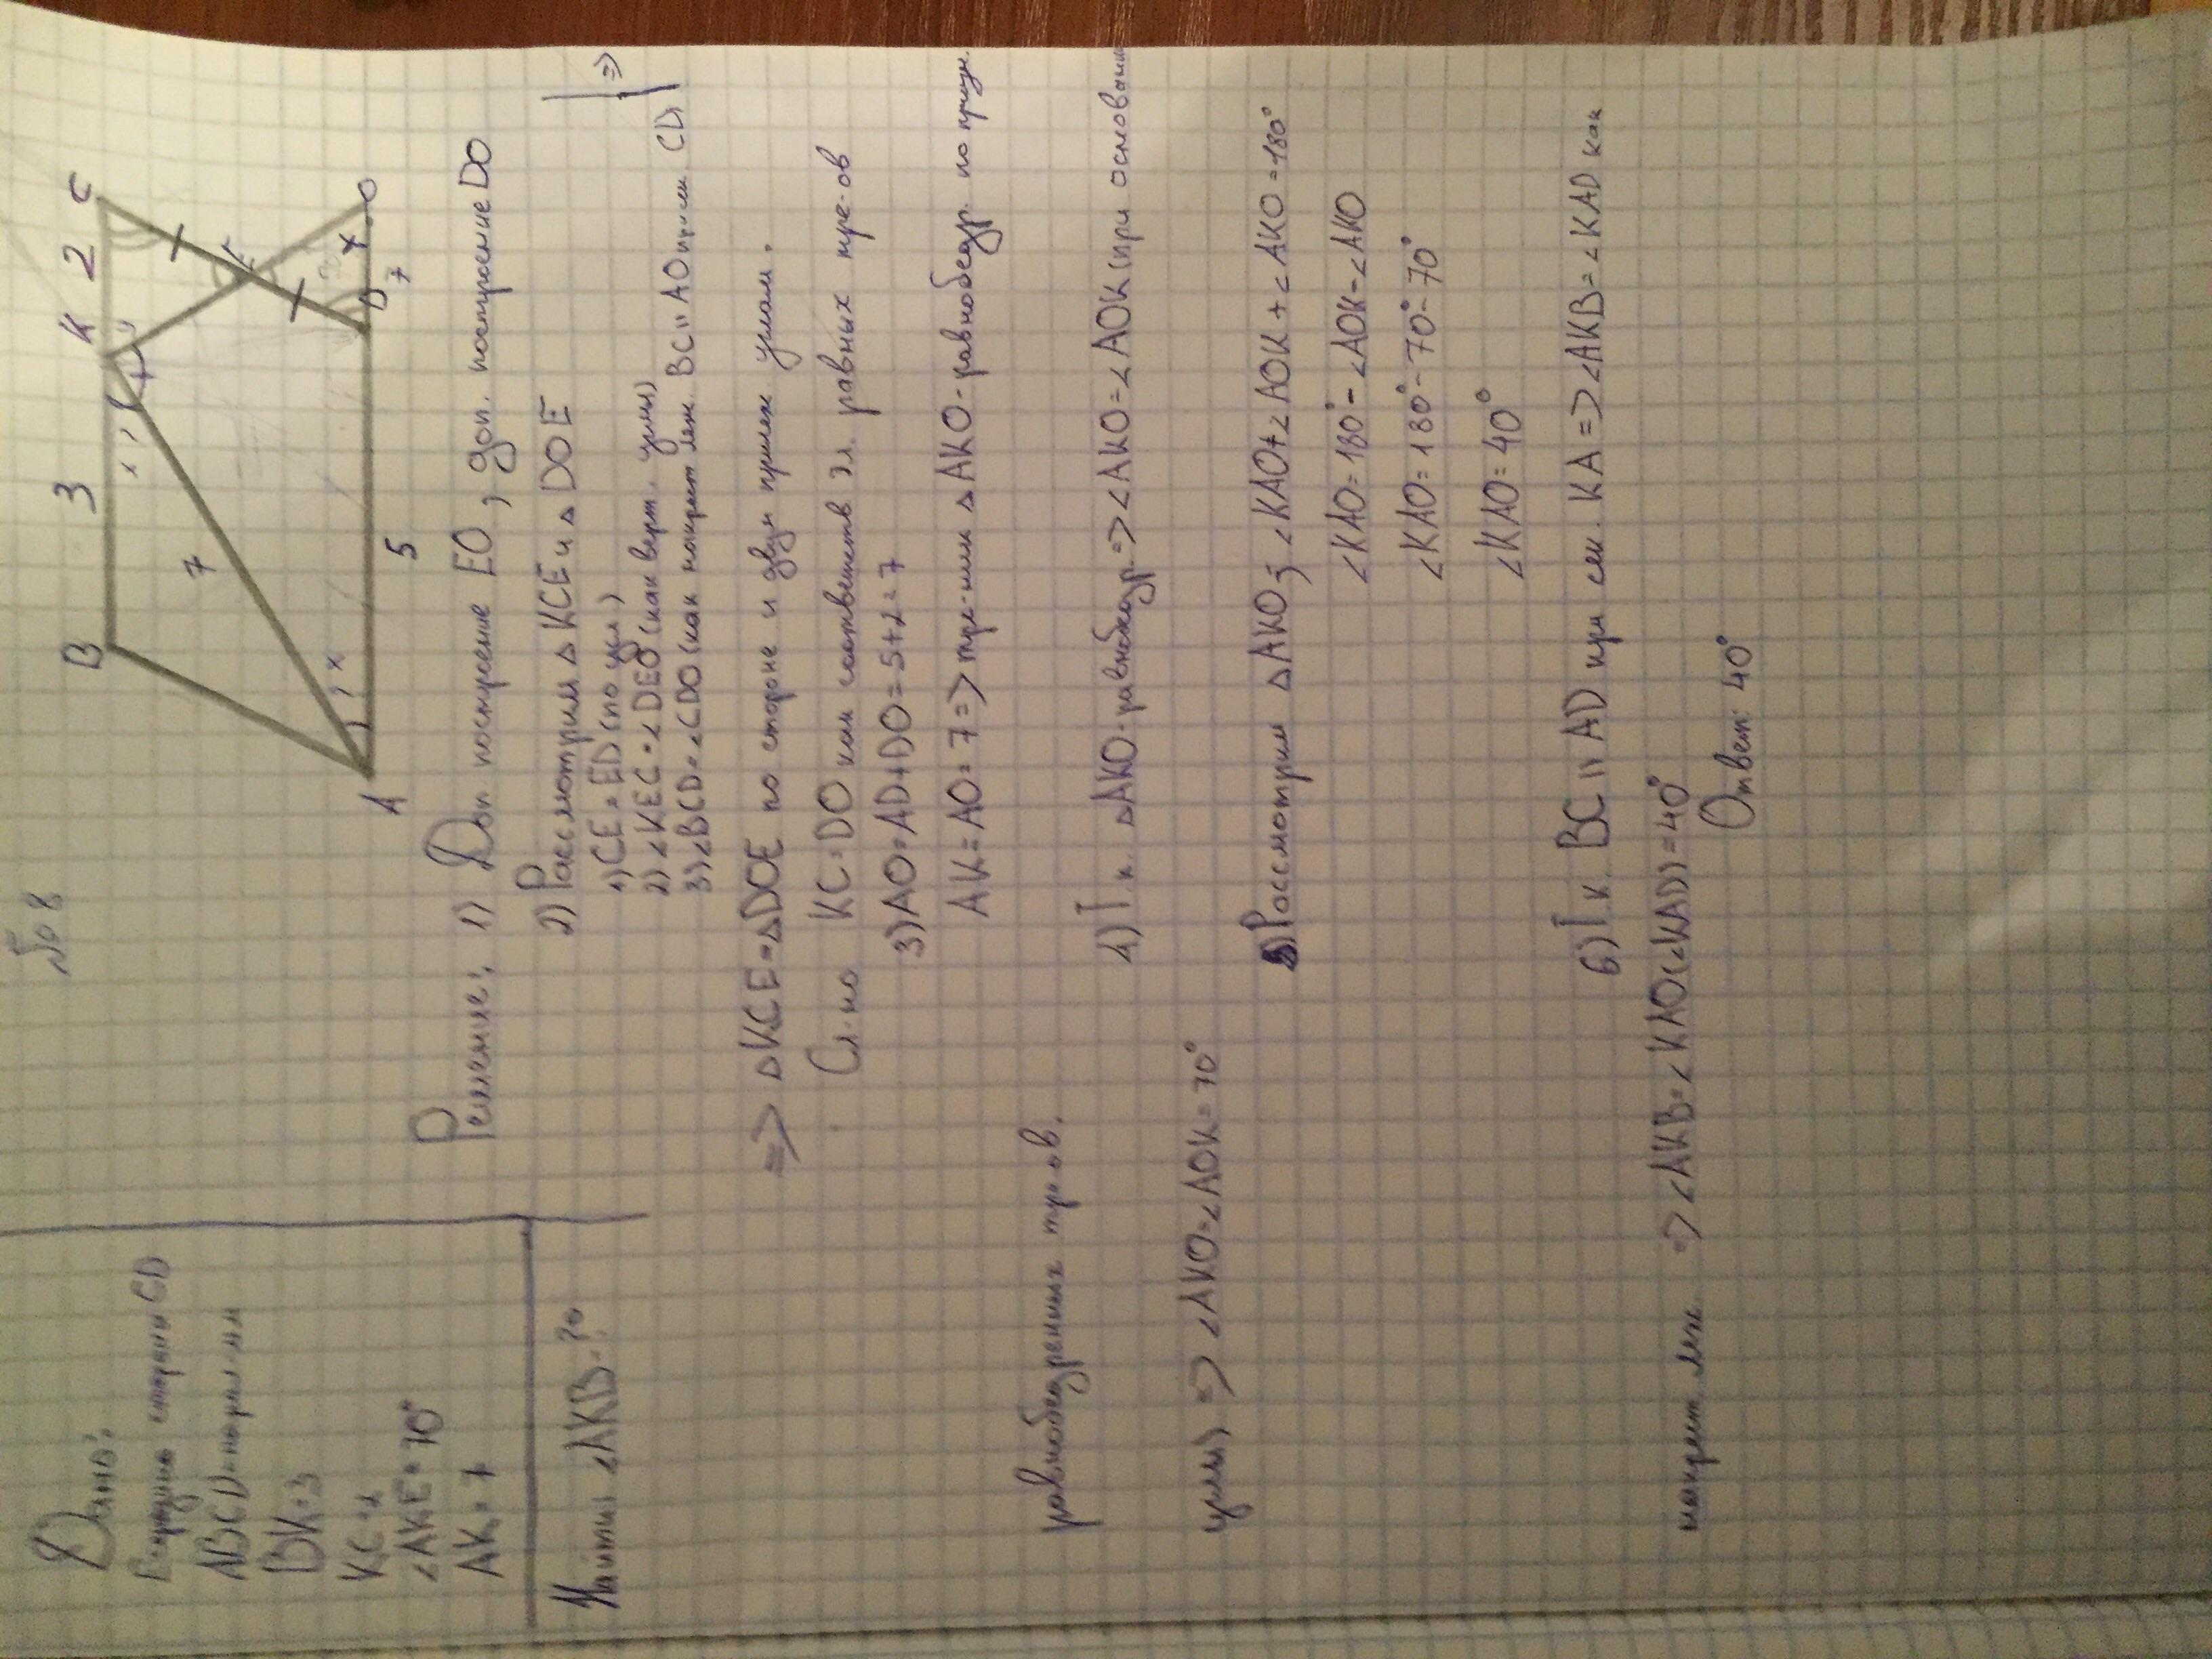 № 8
Дано:
E-середина стороны CD
ABCD-парал-мм
BK=3
KC=2
∠AKE=70°
AK=7
Найти ∠AKB-?
B 3 K 2 C
7
E
A 5 D x O
7
Решение: 1) Доп построение EO, доп. построение DO
2) Рассмотрим ▵ KCE и ▵ DOE
1) CE=ED (по усл)
2) ∠KEC=∠DEO (как верт. углы)
3) ∠BCD=∠CDO (как накрест леж. BC ॥ AO при сек. CD) | =>
=> ▵KCE=▵DOE по стороне и двум прилеж углам.
Сл-но KC=DO как соответств эл. равных тре-ов
3) AO=AD+DO=5+2=7
AK=AO=7=> тре-ник ▵AKO-равнобедр. по призн.
равнобедренных тр-ов.
4) Т.к. ▵AKO-равнобедр.=> ∠AKO=∠AOK (при основании
углы) => ∠AKO=∠AOK=70°
5) Рассмотрим ▵AKO; ∠KAO+∠AOK+∠AKO=180°
∠KAO=180°-∠AOK-∠AKO
∠KAO=180°-70°-70°
∠KAO=40°
6) Т.к. BC ॥ AD при сек. KA=>∠AKB=∠KAD как
накрест леж => ∠AKB=∠KAO(∠KAD)=40°
Ответ: 40°